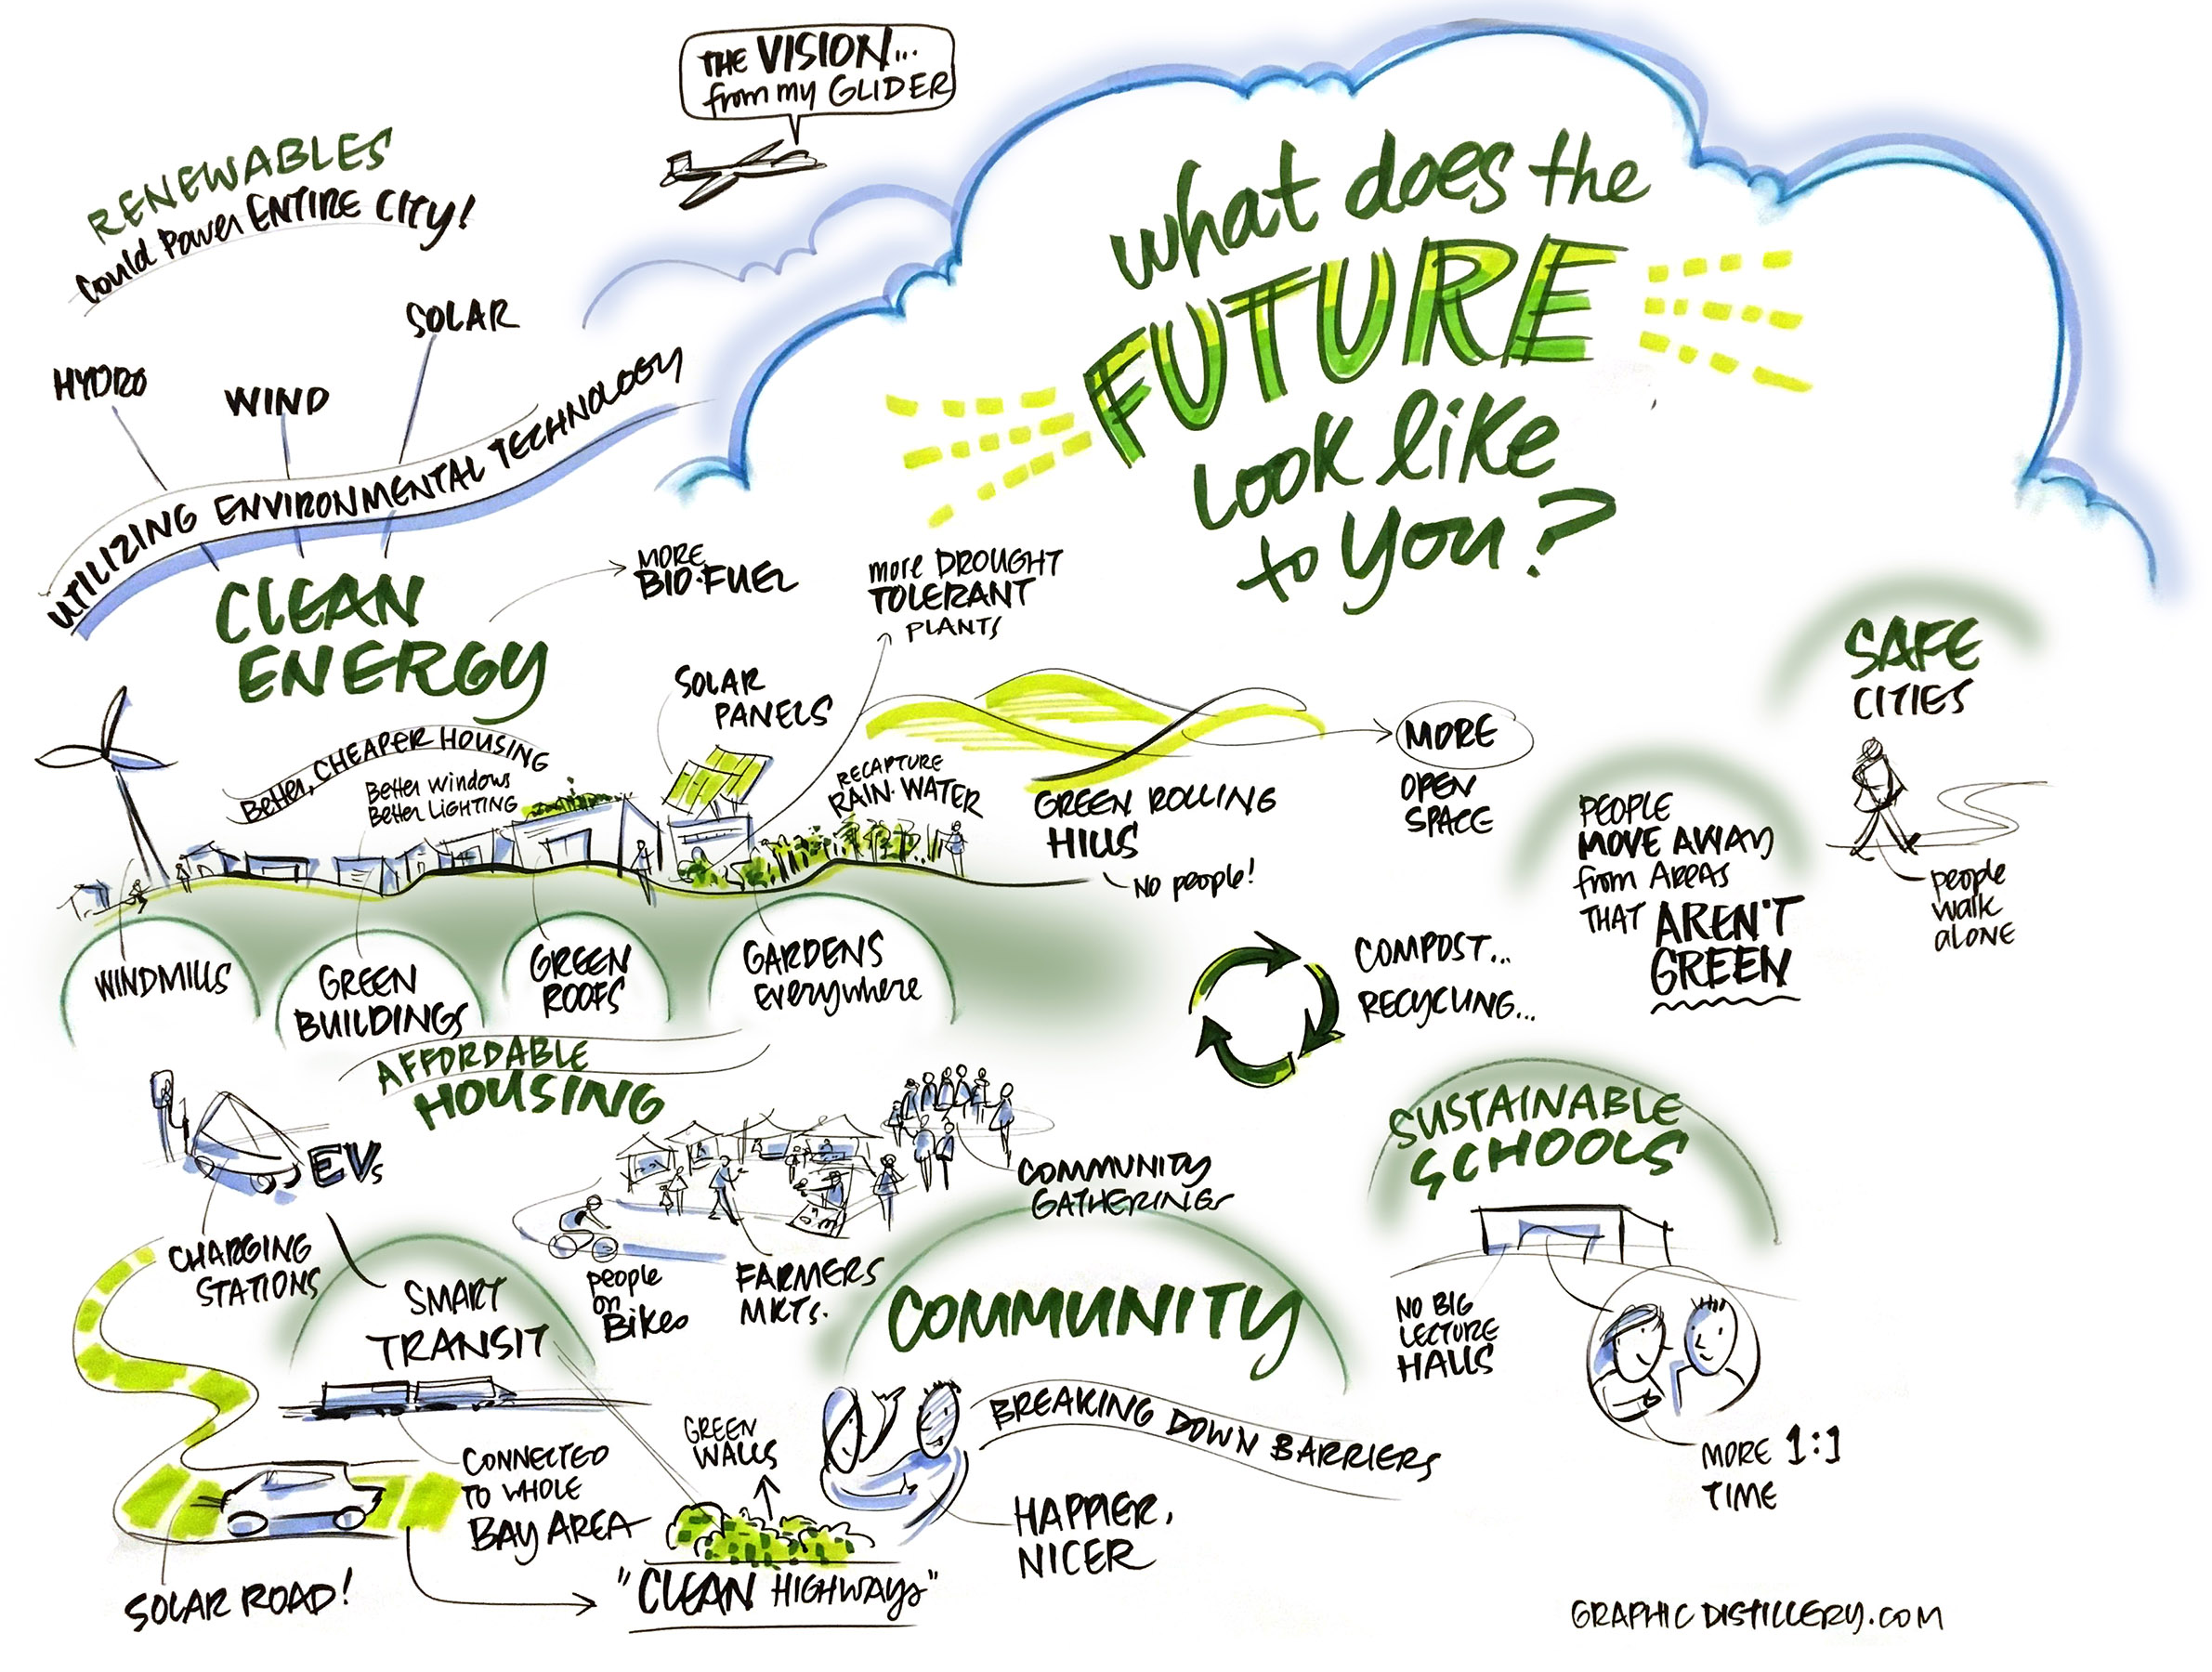 THE VISION...
from my GLIDER
What does the
FUTURE
Look like
to you?
RENEWABLES
Could Power ENTIRE CITY!
HYDRO
WIND
SOLAR
UTILIZING ENVIRONMENTAL TECHNOLOGY
CLEAN
ENERGY
MORE
BIO-FUEL
more DROUGHT
TOLERANT
PLANTS
SOLAR
PANELS
Better, CHEAPER HOUSING
Better Windows
Better LIGHTING
RECAPTURE
RAIN-WATER
GREEN ROLLING
HILLS
NO people!
MORE
OPEN
SPACE
SAFE
CITIES
people
walk
alone
PEOPLE
MOVE AWAY
from AREAS
THAT AREN'T
GREEN
WINDMILLS
GREEN
BUILDINGS
GREEN
ROOFS
GARDENS
Everywhere
COMPOST...
RECYCLING...
AFFORDABLE
HOUSING
EVs
CHARGING
STATIONS
SMART
TRANSIT
people
on
Bikes
FARMERS
MKTS.
COMMUNITY
GATHERINGS
COMMUNITY
BREAKING DOWN BARRIERS
HAPPIER,
NICER
SUSTAINABLE
SCHOOLS
NO BIG
LECTURE
HALLS
MORE 1:1
TIME
CONNECTED
TO WHOLE
BAY AREA
GREEN
WALLS
SOLAR ROAD!
"CLEAN HIGHWAYS"
GRAPHICDISTILLERY.COM